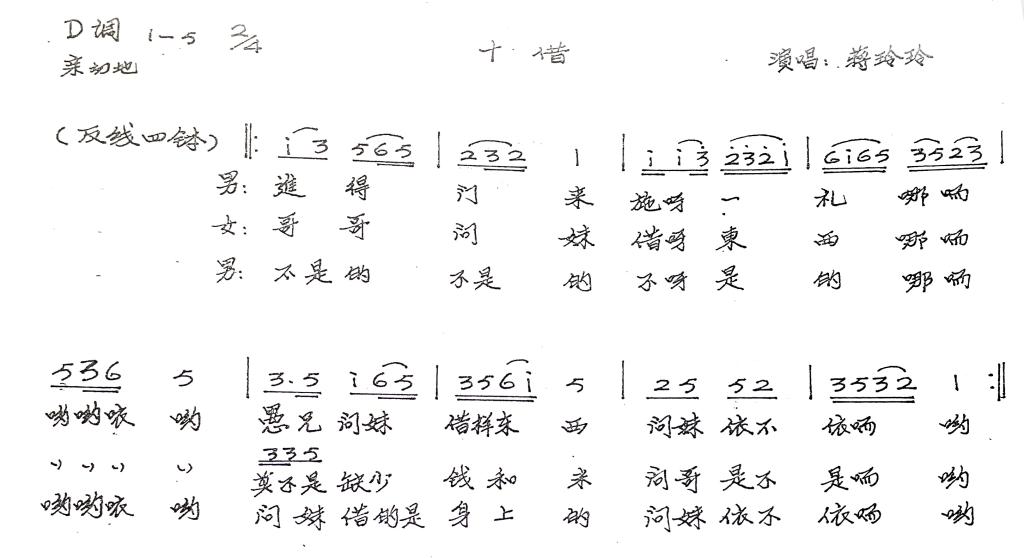 D调 i—5 2/4 十·借 演唱:蒋玲玲
亲切地
(反线四钵) ‖: i 3 5 6 5 | 2 3 2 1 | i i 3 2 3 2 i | 6 i 6 5 3 5 2 3 |
男: 進 得 门 来 施呀 一 礼 哪 唡
女: 哥 哥 问 妹 借呀 東 西 哪 唡
男: 不是 的 不是 的 不呀 是 的 哪 唡
5 3 6 5 | 3. 5 i 6 5 | 3 5 6 i 5 | 2 5 5 2 | 3 5 3 2 1 :‖
哟哟咳 哟 愚兄 问妹 借样东 西 问妹 依不 依唡 哟
3 3 5
〃 〃 〃 〃 莫不是 缺少 钱和 米 问哥 是不 是唡 哟
哟哟咳 哟 问妹 借的是 身上 的 问妹 依不 依唡 哟